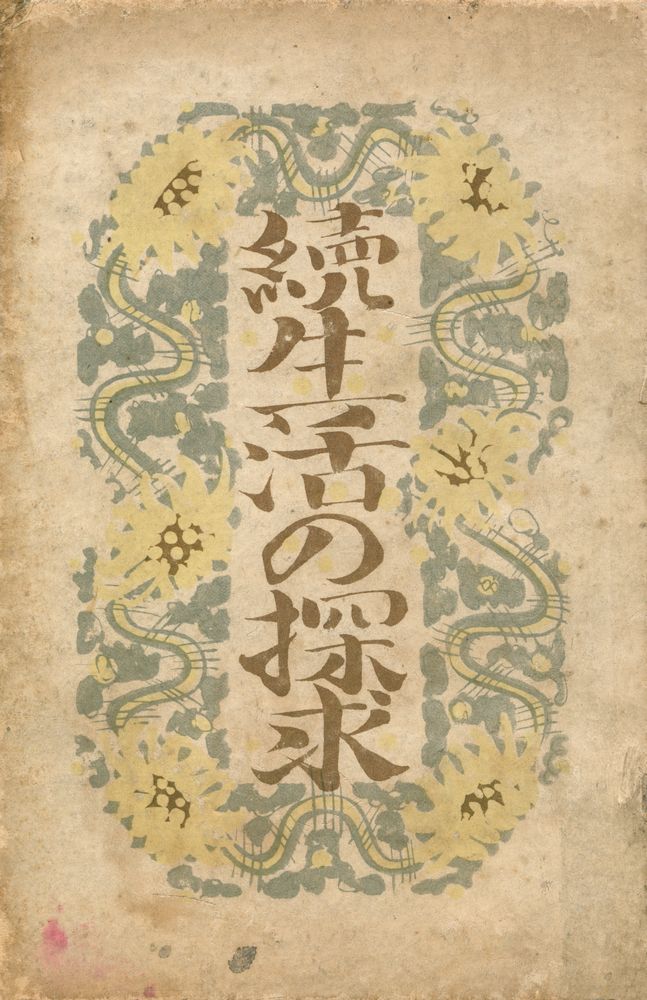 続生活の探求